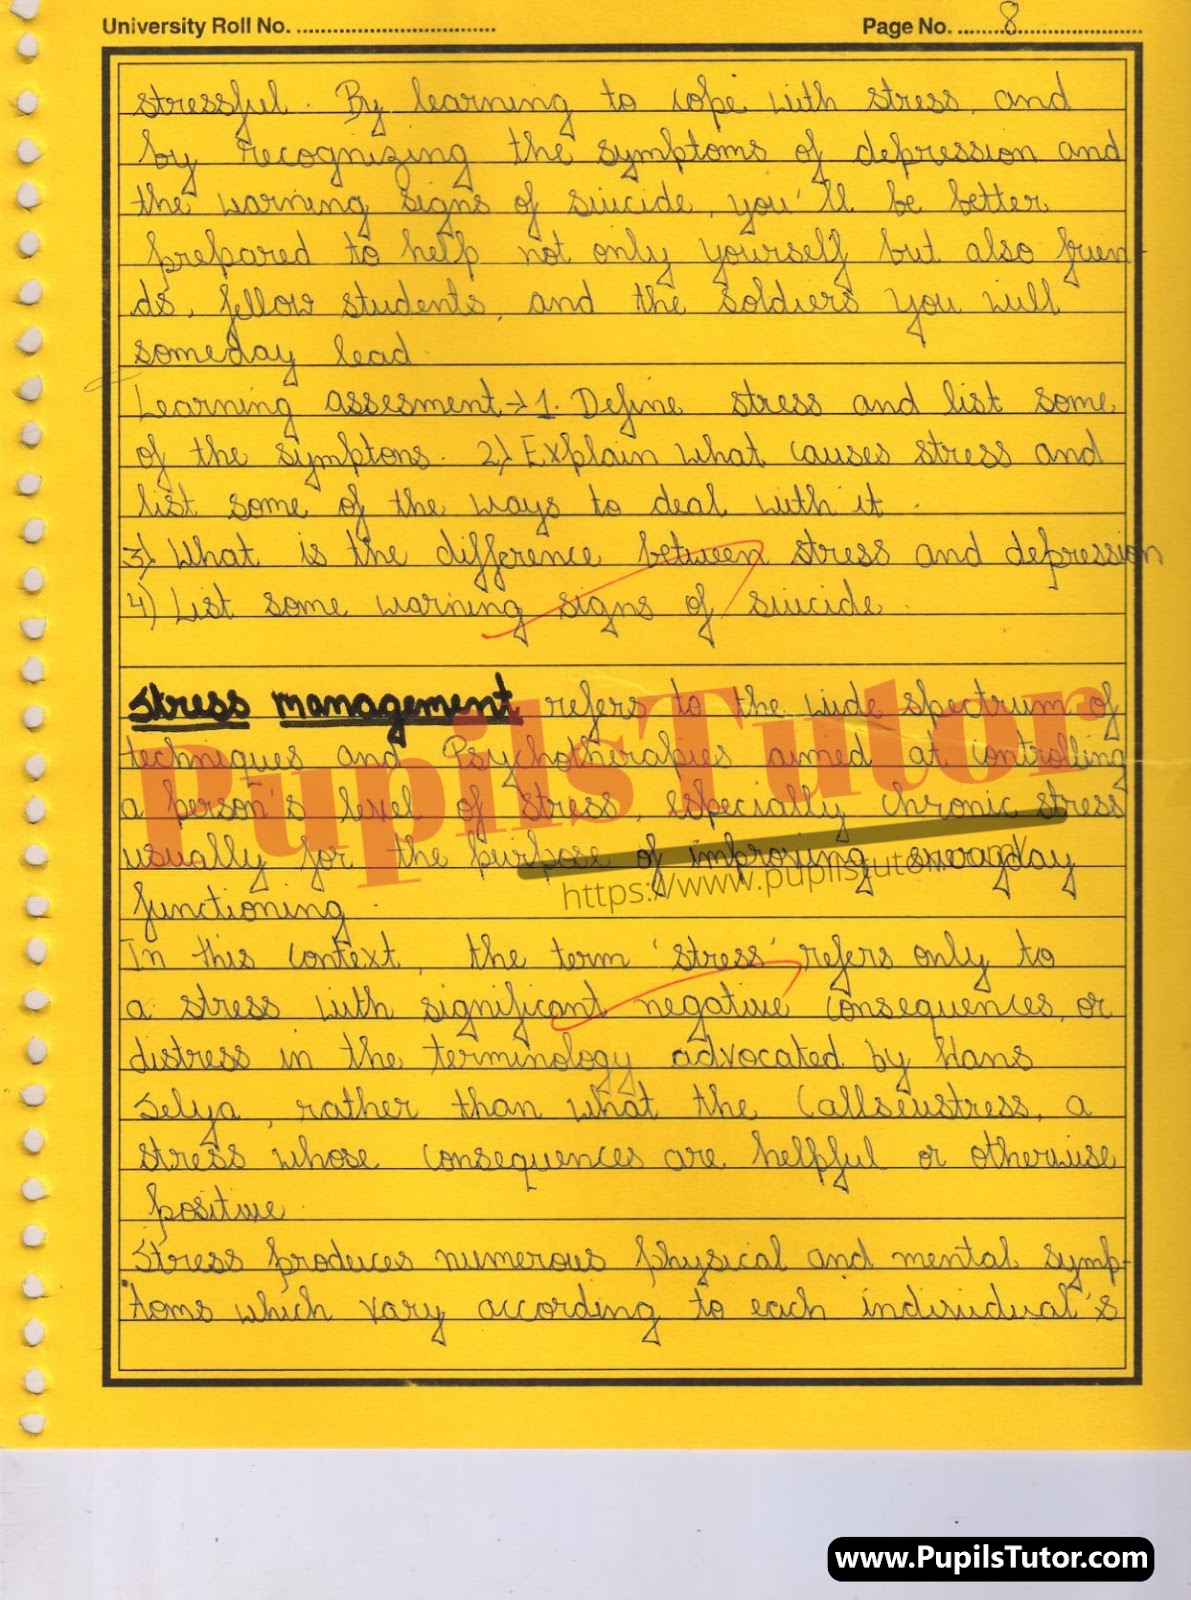 University Roll No. ....................................
Page No. .......8.......................
stressful. By learning to cope with stress, and
by recognizing the symptoms of depression and
the warning signs of suicide, you'll be better
prepared to help not only yourself but also frien-
ds, fellow students, and the soldiers you will
someday lead.
Learning assesment→ 1. Define stress and list some
of the symptons. 2) Explain what causes stress and
list some of the ways to deal with it.
3) What is the difference between stress and depression
4) List some warning signs of suicide.
Stress management refers to the wide spectrum of
techniques and Psychotherapies aimed at controlling
a person's level of stress, especially chronic stress
usually for the purpose of improving everyday
functioning.
In this context, the term 'stress' refers only to
a stress with significant negative consequences, or
distress in the terminology advocated by Hans
Selya, rather than what the callseustress, a
stress whose consequences are helpful or otherwise
positive.
Stress produces numerous physical and mental symp-
toms which vary according to each individual's
PupilsTutor
www.PupilsTutor.com